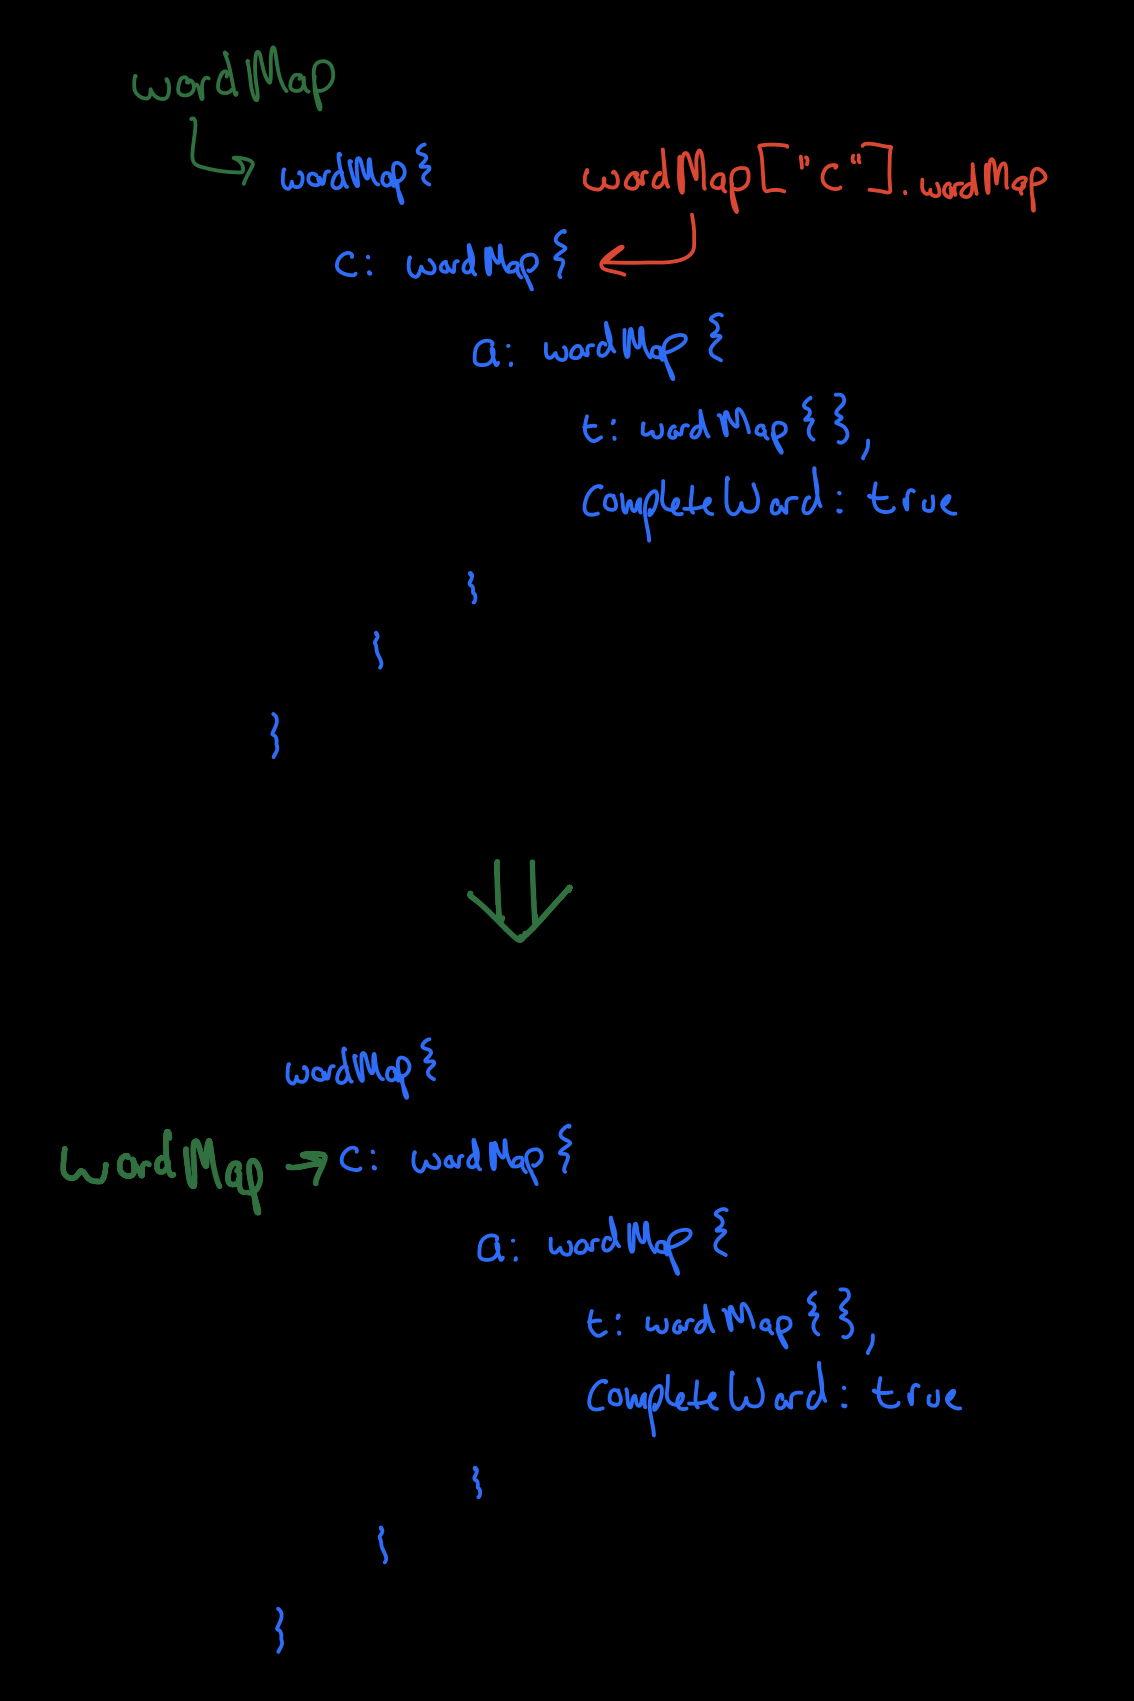 wordMap
wordMap{
wordMap["c"].wordMap
c: wordMap{
a: wordMap{
t: wordMap{},
CompleteWord: true
}
}
}
wordMap{
wordMap
c: wordMap{
a: wordMap{
t: wordMap{},
CompleteWord: true
}
}
}